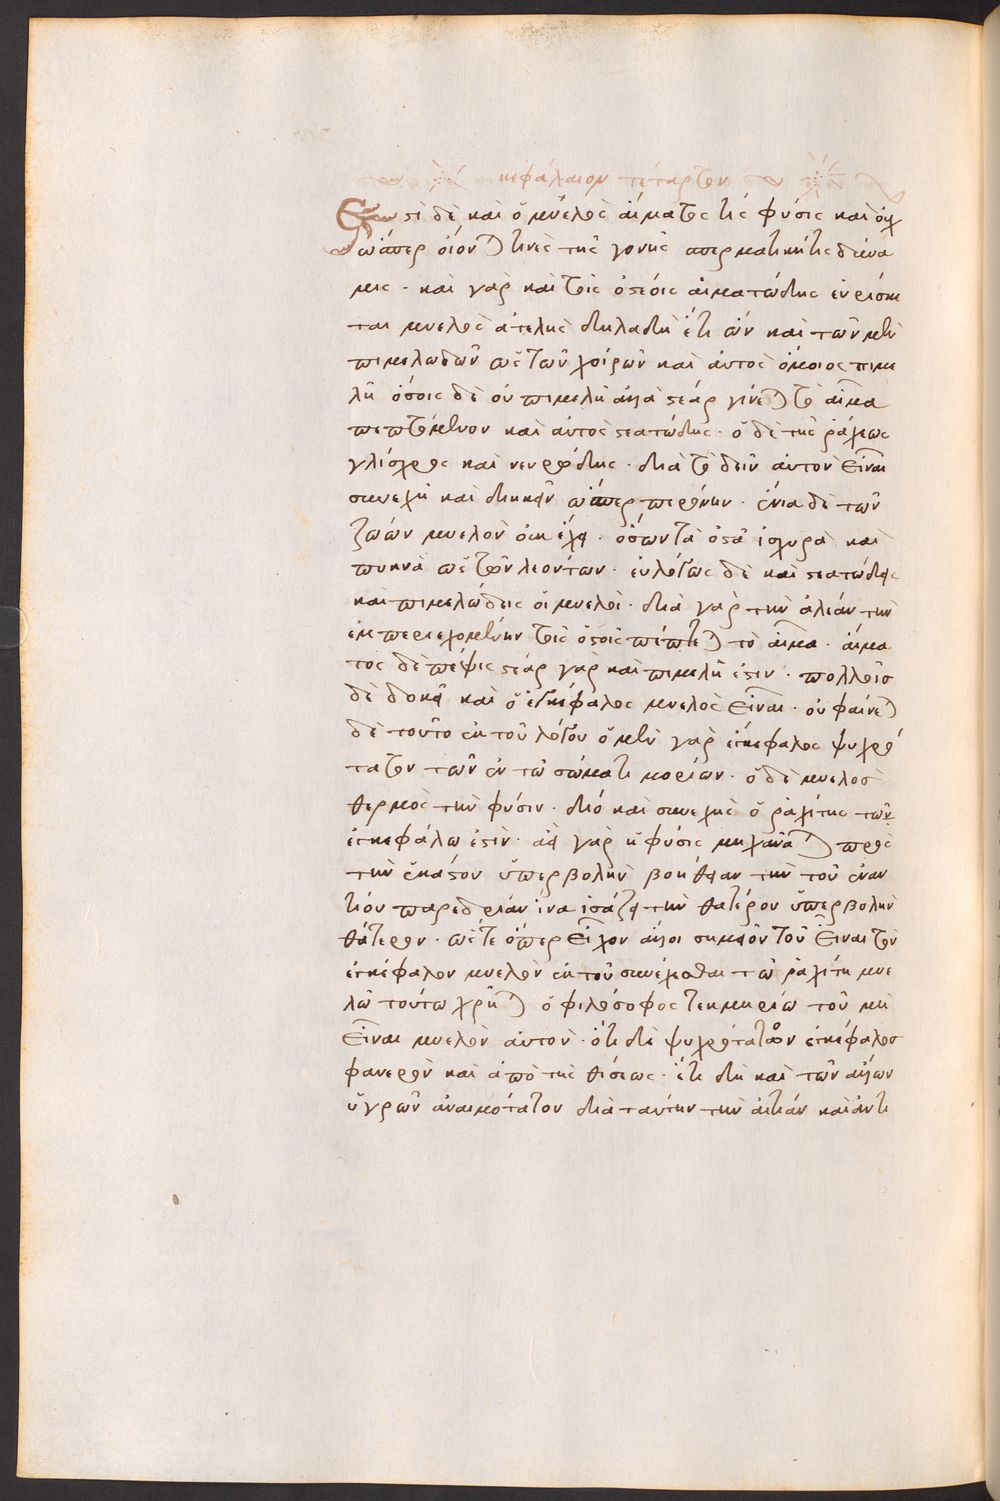 κεφάλαιον τέταρτον
Ἔστι δὲ καὶ ὁ μυελὸς αἵματος τὶς φύσις καὶ οὐχ
ὥσπερ οἴονται τινὲς τῆς γονῆς σπερματικῆς τῆς δύνα
μις · καὶ γὰρ καὶ τοῖς ὀστέοις αἱματώδης εὑρίσκε
ται μυελὸς ἀτελὴς δηλαδὴ ἔτι ὤν καὶ τῶν μὲν
πιμελωδῶν ὡς τῶν χοίρων καὶ αὐτὸς ὅμοιος πιμε
λῆ ὅσοις δὲ οὐ πιμελὴ ἀλλὰ στέαρ γίνεται τὸ αἷμα
πεπτόμενον καὶ αὐτὸς στεατώδης · ὁ δὲ τῆς ῥάχεως
γλίσχρος καὶ νευρώδης · διὰ τὸ δεῖν αὐτὸν εἶναι
συνεχῆ καὶ διηκεῖν ὥσπερ περόνην · ἔνια δὲ τῶν
ζώων μυελὸν οὐκ ἔχει · ὅσων τὰ ὀστᾶ ἰσχυρὰ καὶ
πυκνὰ ὡς τῶν λεόντων · εὐλόγως δὲ καὶ στεατώδεις
καὶ πιμελώδεις οἱ μυελοί · διὰ γὰρ τὴν ἀλέαν τὴν
ἐμπεριεχομένην τοῖς ὀστοῖς πέπτεται τὸ αἷμα · αἵμα
τος δὲ πέψις στέαρ γὰρ καὶ πιμελή ἐστιν · πολλοῖς
δὲ δοκεῖ καὶ ὁ ἐγκέφαλος μυελὸς εἶναι · οὐ φαίνεται
δὲ τοῦτο ἐκ τοῦ λόγου ὁ μὲν γὰρ ἐγκέφαλος ψυχρό
τατον τῶν ἐν τῷ σώματι μορίων · ὁ δὲ μυελὸς
θερμὸς τὴν φύσιν · διό καὶ συνεχὴς ὁ ῥαχίτης τῶ
ἐγκεφάλω ἐστὶν · ἀεὶ γὰρ ἡ φύσις μηχανᾶται πρὸς
τὴν ἑκάστου ὑπερβολὴν βοήθειαν τὴν τοῦ ἐναν
τίου παρεδρίαν ἵνα ἰσάζῃ τὴν θατέρου ὑπερβολὴν
θάτερον · ὥστε ὅπερ εἶχον ἄλλοι σημεῖον τοῦ εἶναι τὸν
ἐγκέφαλον μυελὸν ἐκ τοῦ συνέχεσθαι τῷ ῥαχίτη μυε
λῷ τούτω χρῆται ὁ φιλόσοφος τεκμηρίω τοῦ μὴ
εἶναι μυελὸν αὐτὸν · ὅτι δὲ ψυχρότατον ἐγκέφαλος
φανερὸν καὶ ἀπὸ τῆς θίξεως · ἔτι δὴ καὶ τῶν ἄλλων
ὑγρῶν ἀναιμότατον διὰ ταύτην τὴν αἰτίαν καὶ ἀντι